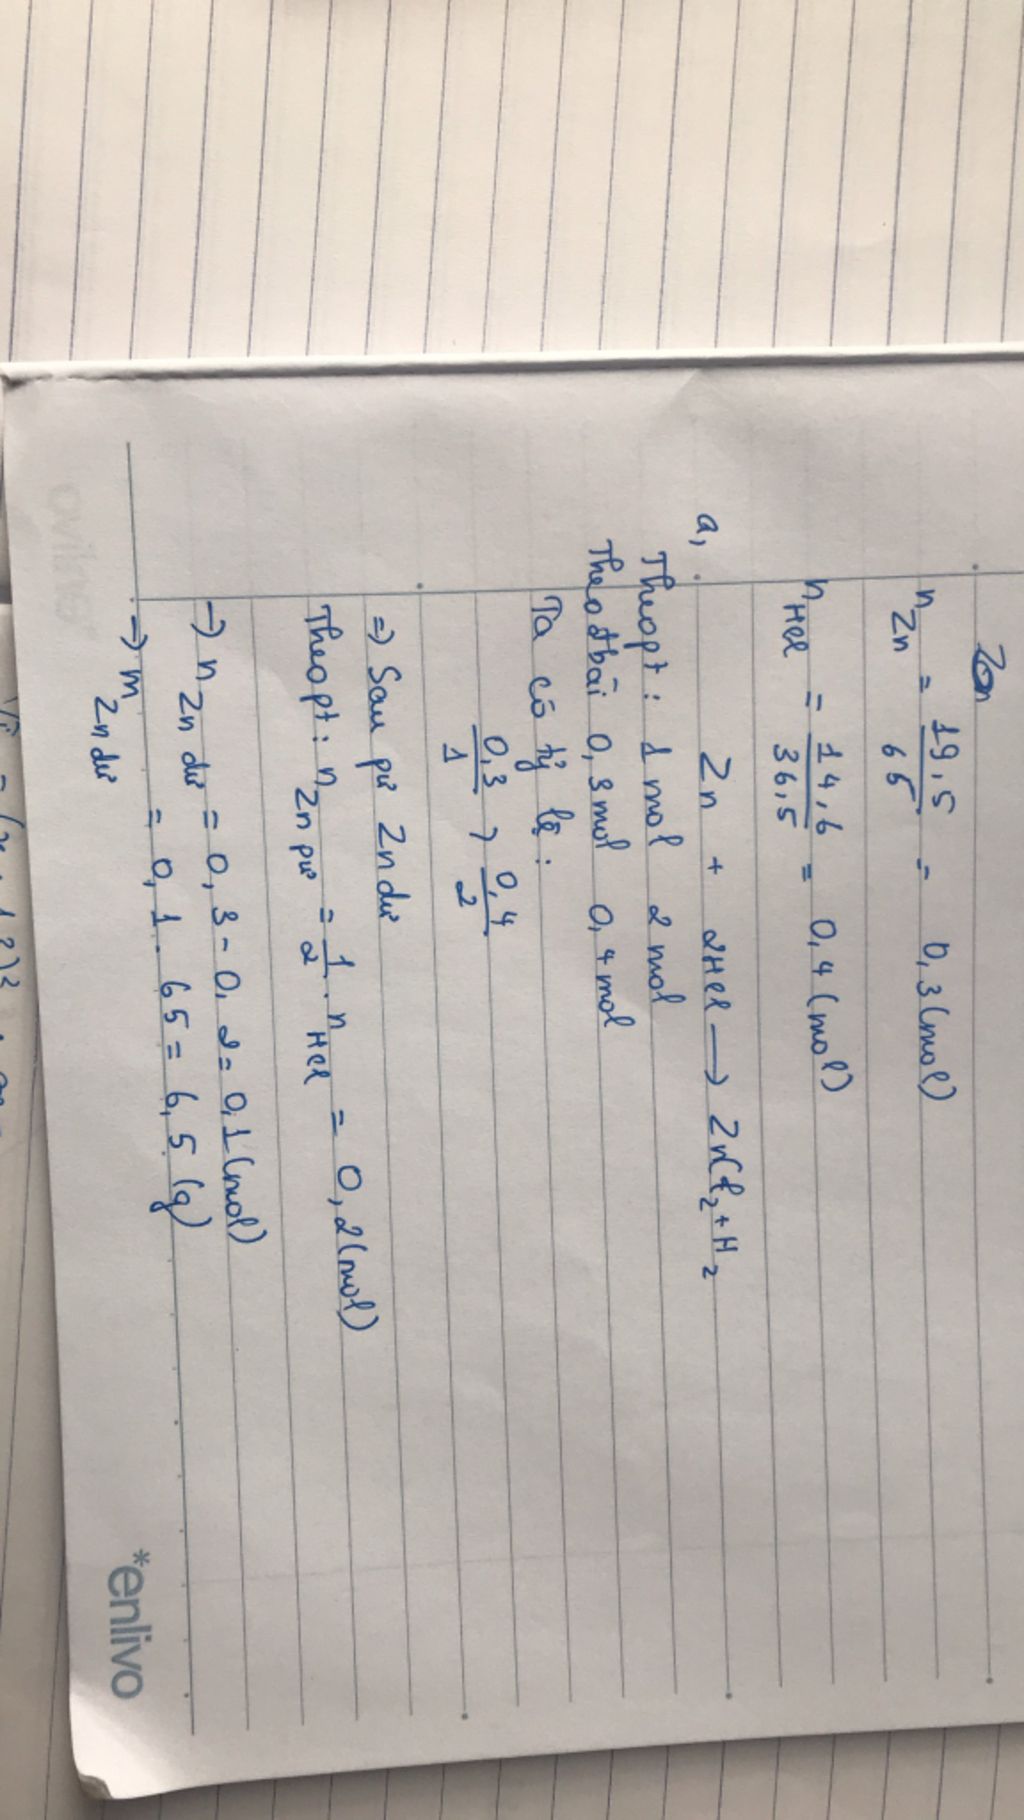 n Zn = 19,5/65 = 0,3 (mol)
n HCl = 14,6/36,5 = 0,4 (mol)
a, Zn + 2HCl → ZnCl2 + H2
Theo pt : 1 mol 2 mol
Theo đbài 0,3 mol 0,4 mol
Ta có tỷ lệ :
0,3/1 > 0,4/2
=> Sau pư Zn dư
Theo pt : n Zn pư = 1/2 . n HCl = 0,2 (mol)
→ n Zn dư = 0,3 - 0,2 = 0,1 (mol)
→ m Zn dư = 0,1 . 65 = 6,5 (g)
*enlivo